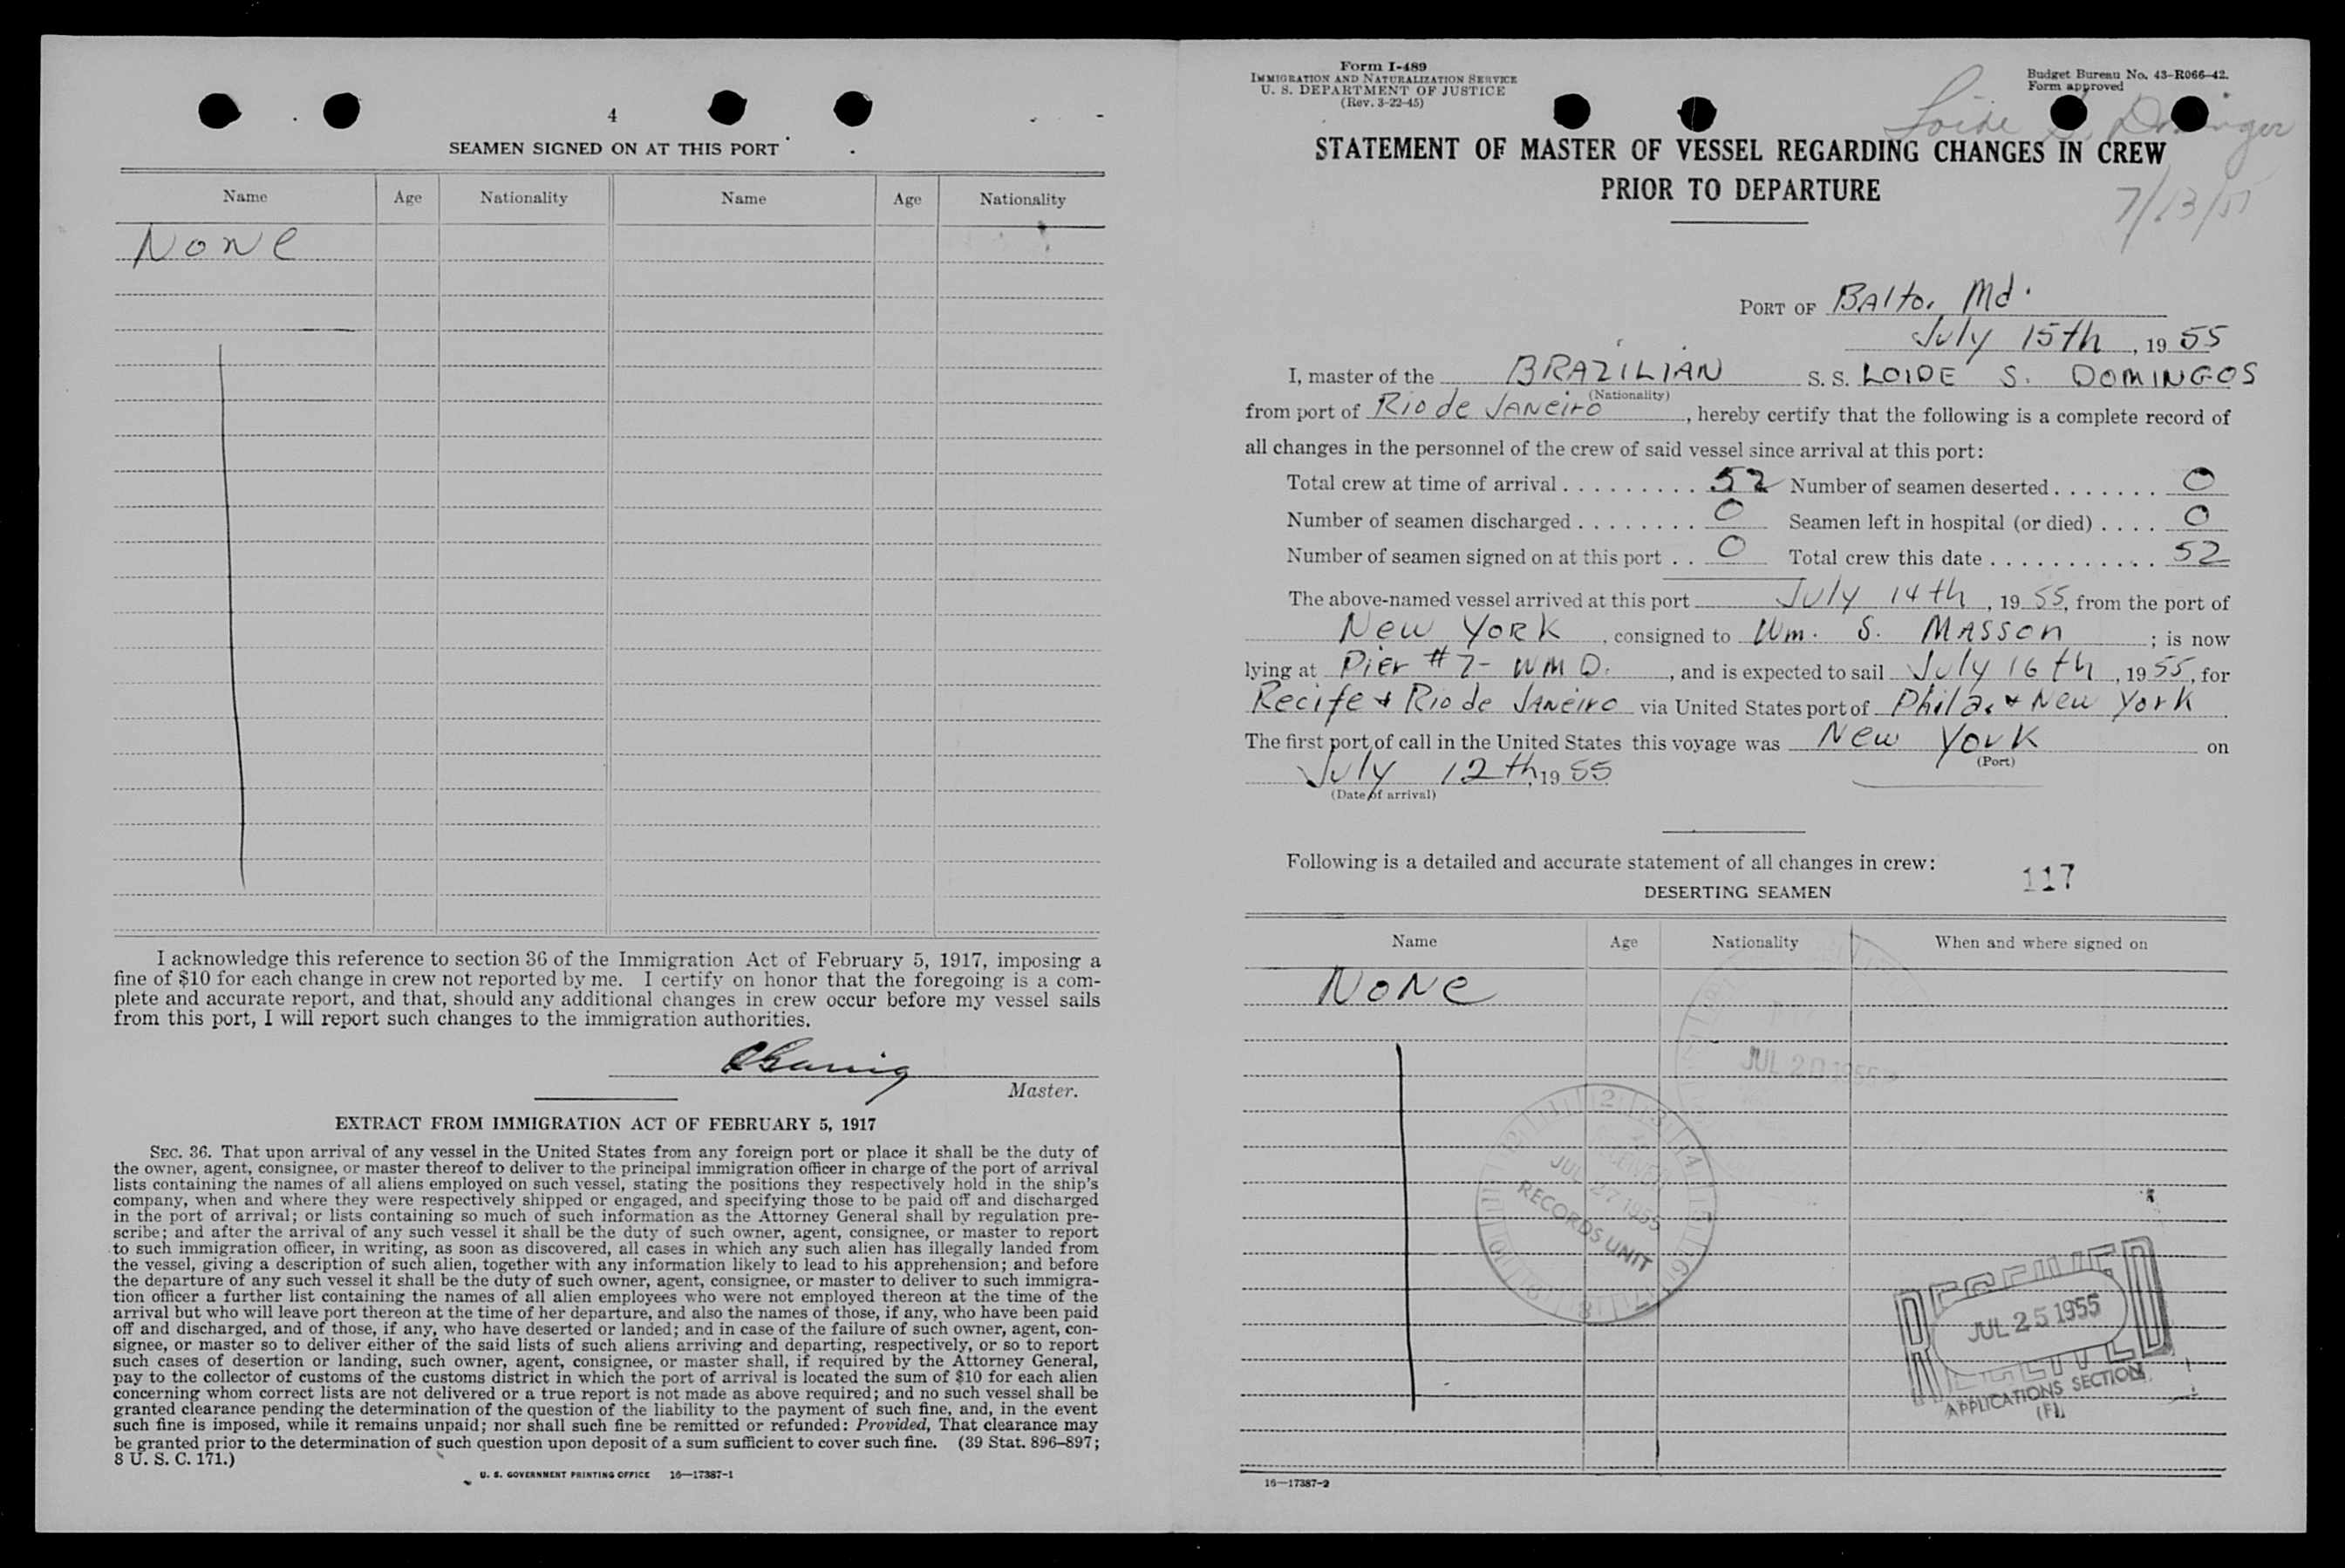 4
SEAMEN SIGNED ON AT THIS PORT
Name Age Nationality Name Age Nationality
None
I acknowledge this reference to section 36 of the Immigration Act of February 5, 1917, imposing a
fine of $10 for each change in crew not reported by me. I certify on honor that the foregoing is a com-
plete and accurate report, and that, should any additional changes in crew occur before my vessel sails
from this port, I will report such changes to the immigration authorities.
Master.
EXTRACT FROM IMMIGRATION ACT OF FEBRUARY 5, 1917
SEC. 36. That upon arrival of any vessel in the United States from any foreign port or place it shall be the duty of
the owner, agent, consignee, or master thereof to deliver to the principal immigration officer in charge of the port of arrival
lists containing the names of all aliens employed on such vessel, stating the positions they respectively hold in the ship's
company, when and where they were respectively shipped or engaged, and specifying those to be paid off and discharged
in the port of arrival; or lists containing so much of such information as the Attorney General shall by regulation pre-
scribe; and after the arrival of any such vessel it shall be the duty of such owner, agent, consignee, or master to report
to such immigration officer, in writing, as soon as discovered, all cases in which any such alien has illegally landed from
the vessel, giving a description of such alien, together with any information likely to lead to his apprehension; and before
the departure of any such vessel it shall be the duty of such owner, agent, consignee, or master to deliver to such immigra-
tion officer a further list containing the names of all alien employees who were not employed thereon at the time of the
arrival but who will leave port thereon at the time of her departure, and also the names of those, if any, who have been paid
off and discharged, and of those, if any, who have deserted or landed; and in case of the failure of such owner, agent, con-
signee, or master so to deliver either of the said lists of such aliens arriving and departing, respectively, or so to report
such cases of desertion or landing, such owner, agent, consignee, or master shall, if required by the Attorney General,
pay to the collector of customs of the customs district in which the port of arrival is located the sum of $10 for each alien
concerning whom correct lists are not delivered or a true report is not made as above required; and no such vessel shall be
granted clearance pending the determination of the question of the liability to the payment of such fine, and, in the event
such fine is imposed, while it remains unpaid; nor shall such fine be remitted or refunded: Provided, That clearance may
be granted prior to the determination of such question upon deposit of a sum sufficient to cover such fine. (39 Stat. 896–897;
8 U. S. C. 171.)
U. S. GOVERNMENT PRINTING OFFICE 16—17387-1
Form I-489
IMMIGRATION AND NATURALIZATION SERVICE
U. S. DEPARTMENT OF JUSTICE
(Rev. 3-22-45)
Budget Bureau No. 43-R066-42.
Form approved
Loide S. Domingos
STATEMENT OF MASTER OF VESSEL REGARDING CHANGES IN CREW
PRIOR TO DEPARTURE
7/13/55
PORT OF Balto, Md.
July 15th, 1955
I, master of the BRAZILIAN S. S. LOIDE S. DOMINGOS
(Nationality)
from port of Rio de Janeiro, hereby certify that the following is a complete record of
all changes in the personnel of the crew of said vessel since arrival at this port:
Total crew at time of arrival . . . . . . . . . . 52 Number of seamen deserted . . . . . . . 0
Number of seamen discharged . . . . . . . . 0 Seamen left in hospital (or died) . . . . 0
Number of seamen signed on at this port . . 0 Total crew this date . . . . . . . . . . . . 52
The above-named vessel arrived at this port July 14th, 1955, from the port of
New York, consigned to Wm. S. Masson; is now
lying at Pier #7- WMD., and is expected to sail July 16th, 1955, for
Recife & Rio de Janeiro via United States port of Phila. & New York.
The first port of call in the United States this voyage was New York on
(Port)
July 12th, 1955
(Date of arrival)
Following is a detailed and accurate statement of all changes in crew:
117
DESERTING SEAMEN
Name Age Nationality When and where signed on
None
JUL 20 1955
RECEIVED
JUL 27 1955
RECORDS UNIT
RECEIVED
JUL 25 1955
APPLICATIONS SECTION
(F)
16—17387-2